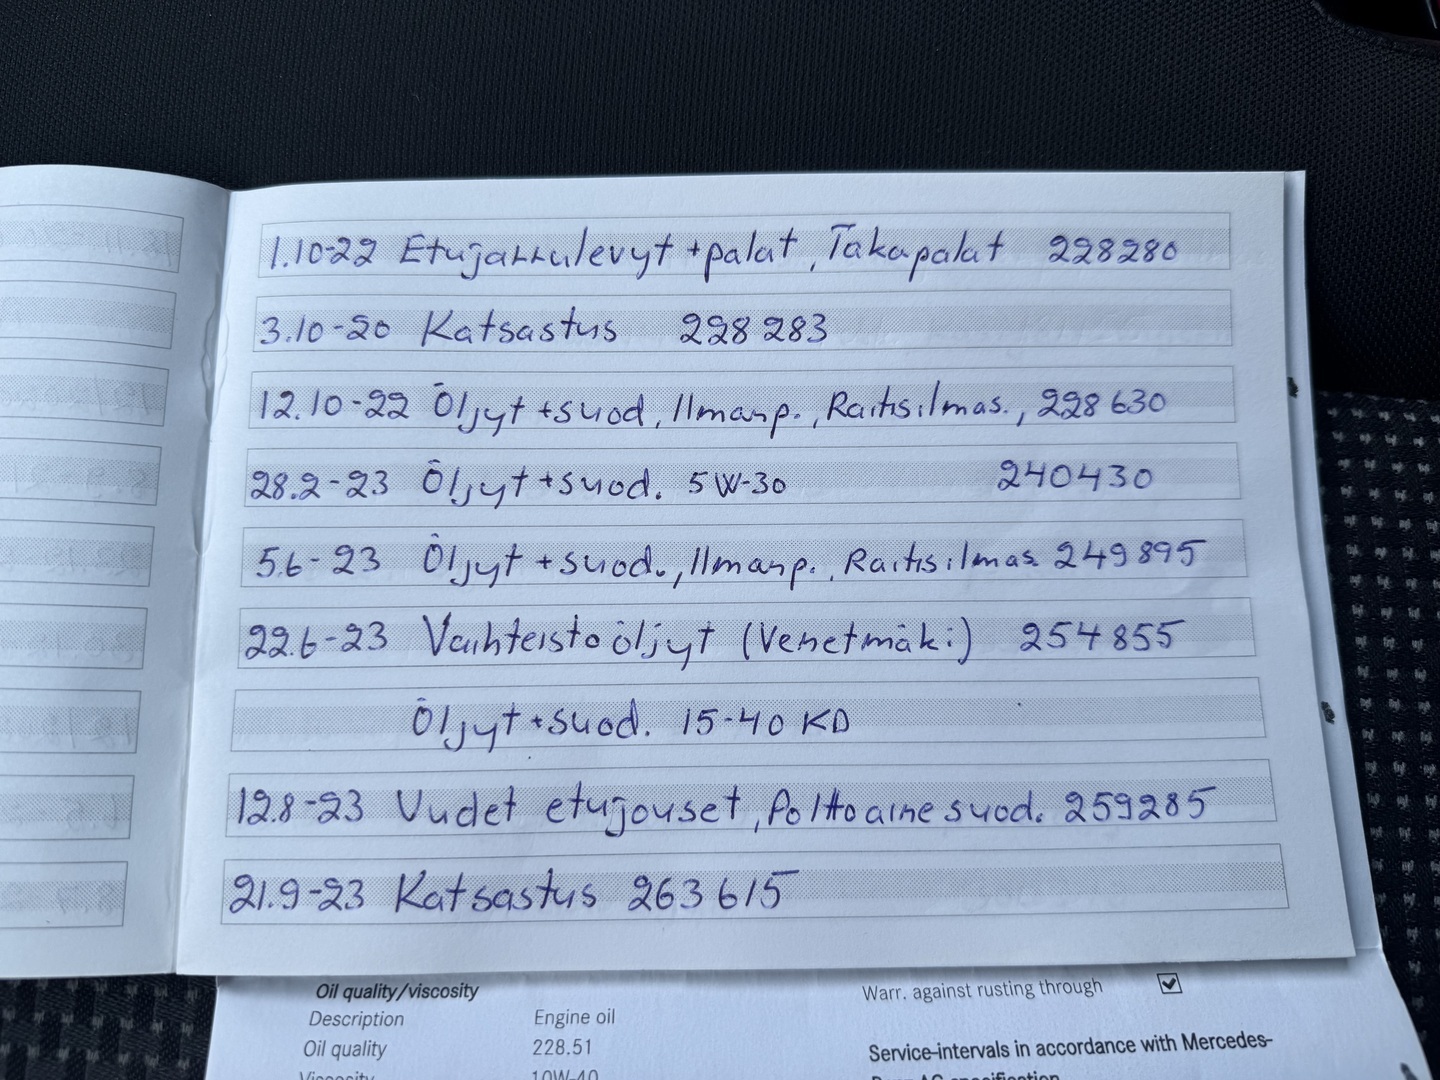 1.10-22 Etujarrulevyt + palat, Takapalat 228280
3.10-20 Katsastus 228283
12.10-22 Öljyt + suod, Ilmanp., Raitisilmas., 228630
28.2-23 Öljyt + suod. 5W-30 240430
5.6-23 Öljyt + suod., Ilmanp., Raitisilmas. 249895
22.6-23 Vaihteistoöljyt (Venetmäki) 254855
Öljyt + suod. 15-40 KD
12.8-23 Uudet etujouset, Polttoainesuod. 259285
21.9-23 Katsastus 263615
Oil quality/viscosity
Description Engine oil
Oil quality 228.51
Viscosity 10W-40
Warr. against rusting through
Service-intervals in accordance with Mercedes-